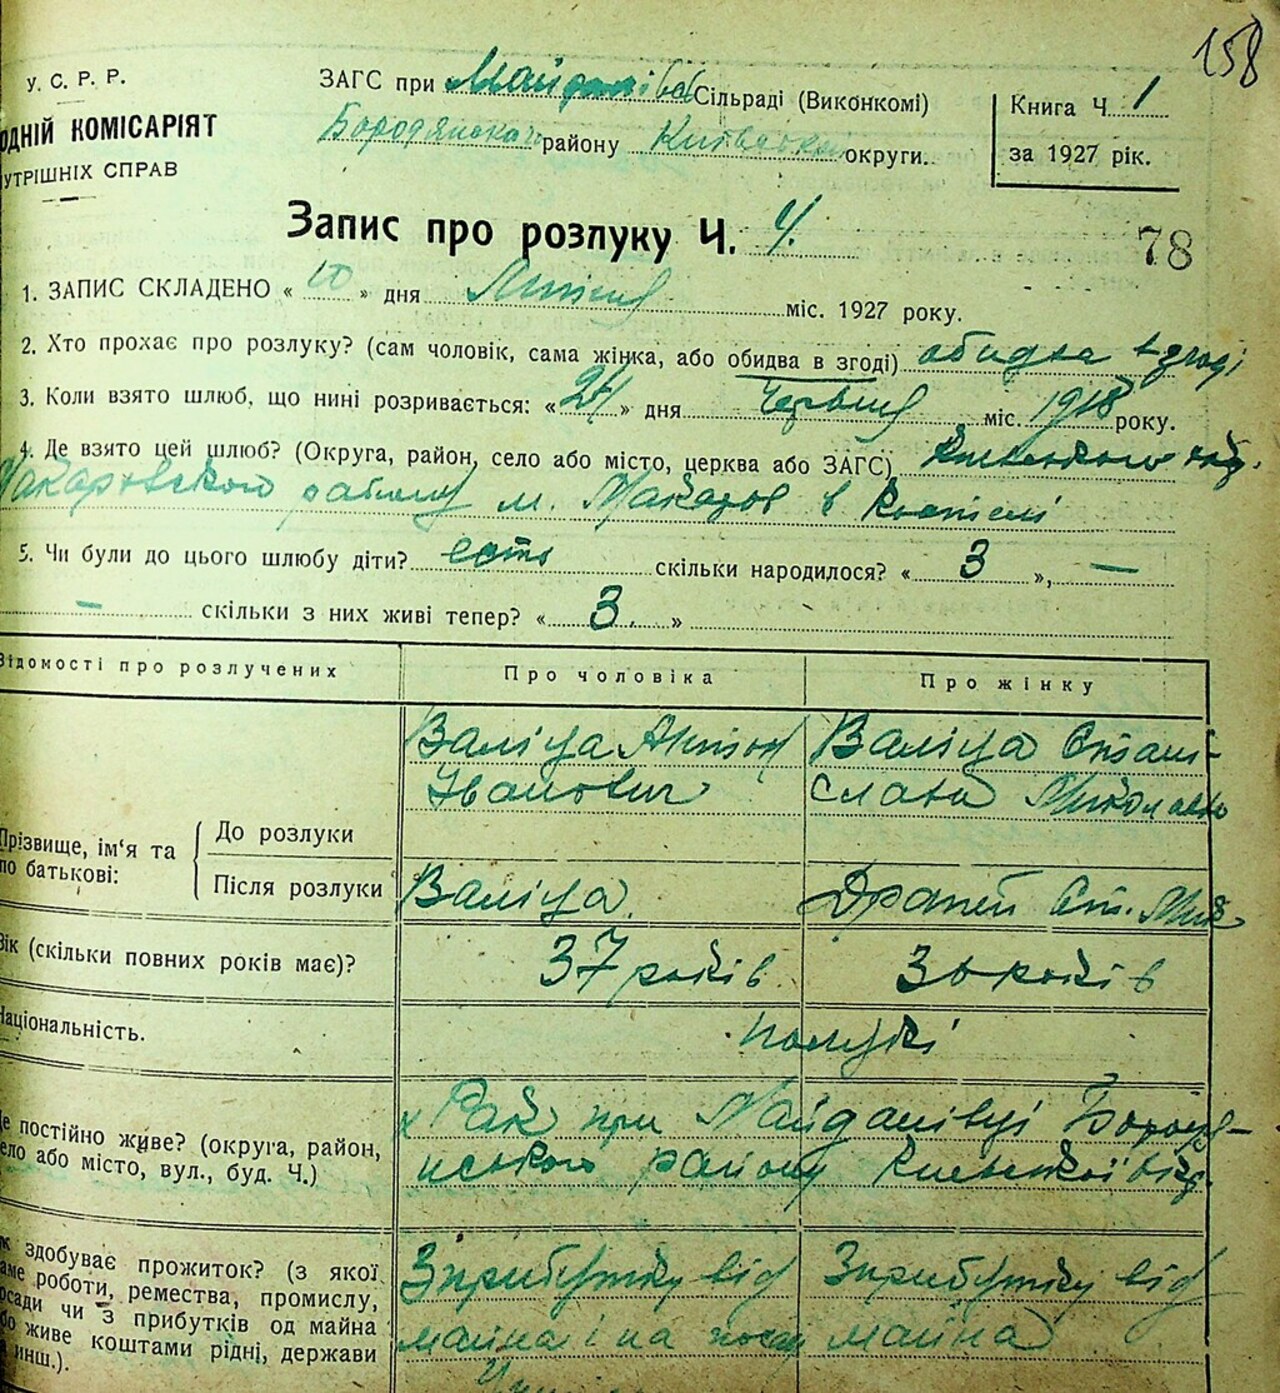 158
У. С. Р. Р.
ОДНІЙ КОМІСАРІЯТ
УТРІШНІХ СПРАВ
ЗАГС при Сільраді (Виконкомі)
району округи.
Книга Ч. 1
за 1927 рік.
Запис про розлуку Ч. 4.
78
1. ЗАПИС СКЛАДЕНО « 10 » дня Липня міс. 1927 року.
2. Хто прохає про розлуку? (сам чоловік, сама жінка, або обидва в згоді) обидва в згоді
3. Коли взято шлюб, що нині розривається: « » дня Червня міс. 1918 року.
4. Де взято цей шлюб? (Округа, район, село або місто, церква або ЗАГС)
Макаровского району м. Макаров в Костелі
5. Чи були до цього шлюбу діти? есть скільки народилося? « 3 », —
— скільки з них живі тепер? « 3. »
Відомості про розлучених
Про чоловіка
Про жінку
Прізвище, ім'я та по батькові:
До розлуки
Валіца Антон
Іванович
Валіца Стані-
слава
Після розлуки
Валіца.
Ст.
Вік (скільки повних років має)?
37 років
36 років
Національність.
Де постійно живе? (округа, район,
село або місто, вул., буд. Ч.)
при Майданівці Бородя-
нського району
здобуває прожиток? (з якої
саме роботи, ремества, промислу,
посади чи з прибутків од майна
або живе коштами рідні, держави
инш.).
Зприбутку від
майна і на
Зприбутку від
майна